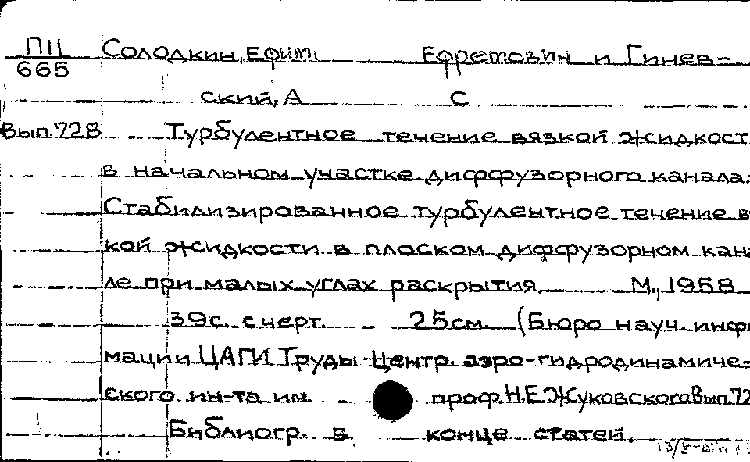 П11 Солодкин, Ефим Ефремович и Гинев-
665
ский, А С
Вып.728 Турбулентное течение вязкой жидкост
в начальном участке диффузорного канала.
Стабилизированное турбулентное течение в
кой жидкости в плоском диффузорном кан
ле при малых углах раскрытия М., 1958
39с. с черт. 25см. (Бюро науч. инф
мации ЦАГИ Труды Центр. аэро-гидродинамиче-
ского ин-та им проф. Н.Е.Жуковского Вып.72
Библиогр. в конце статей.